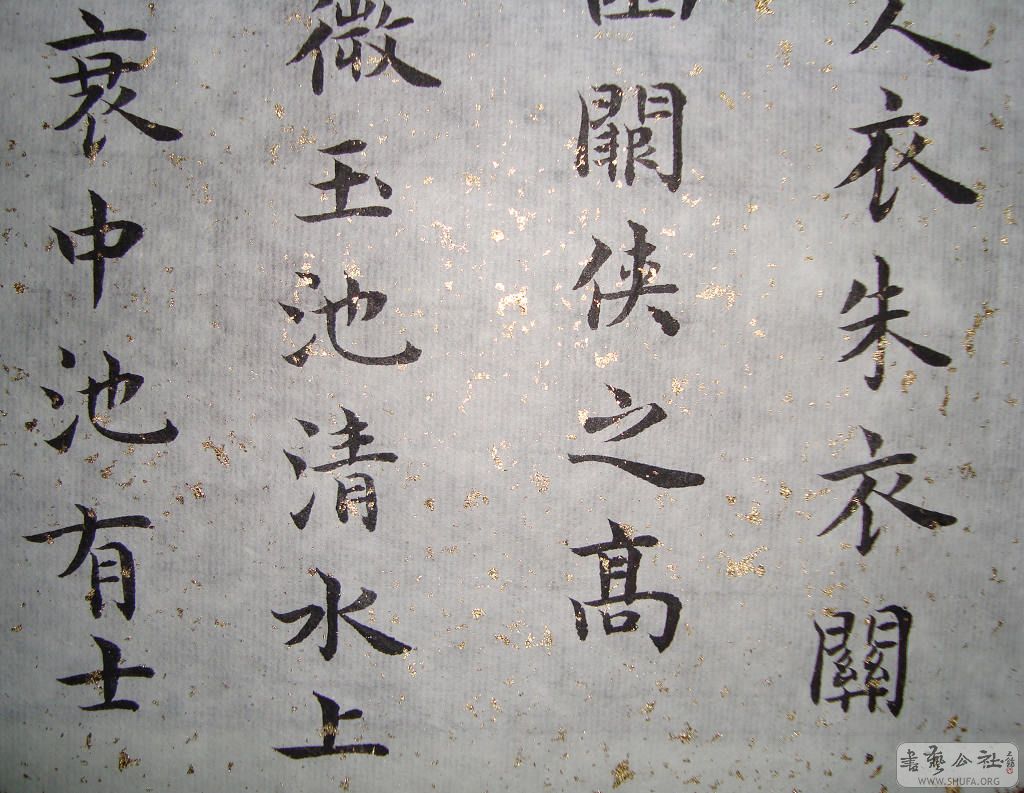 人衣朱衣關
闕侠之髙
微玉池清水上
衰中池有士
書藝公社
WWW.SHUFA.ORG